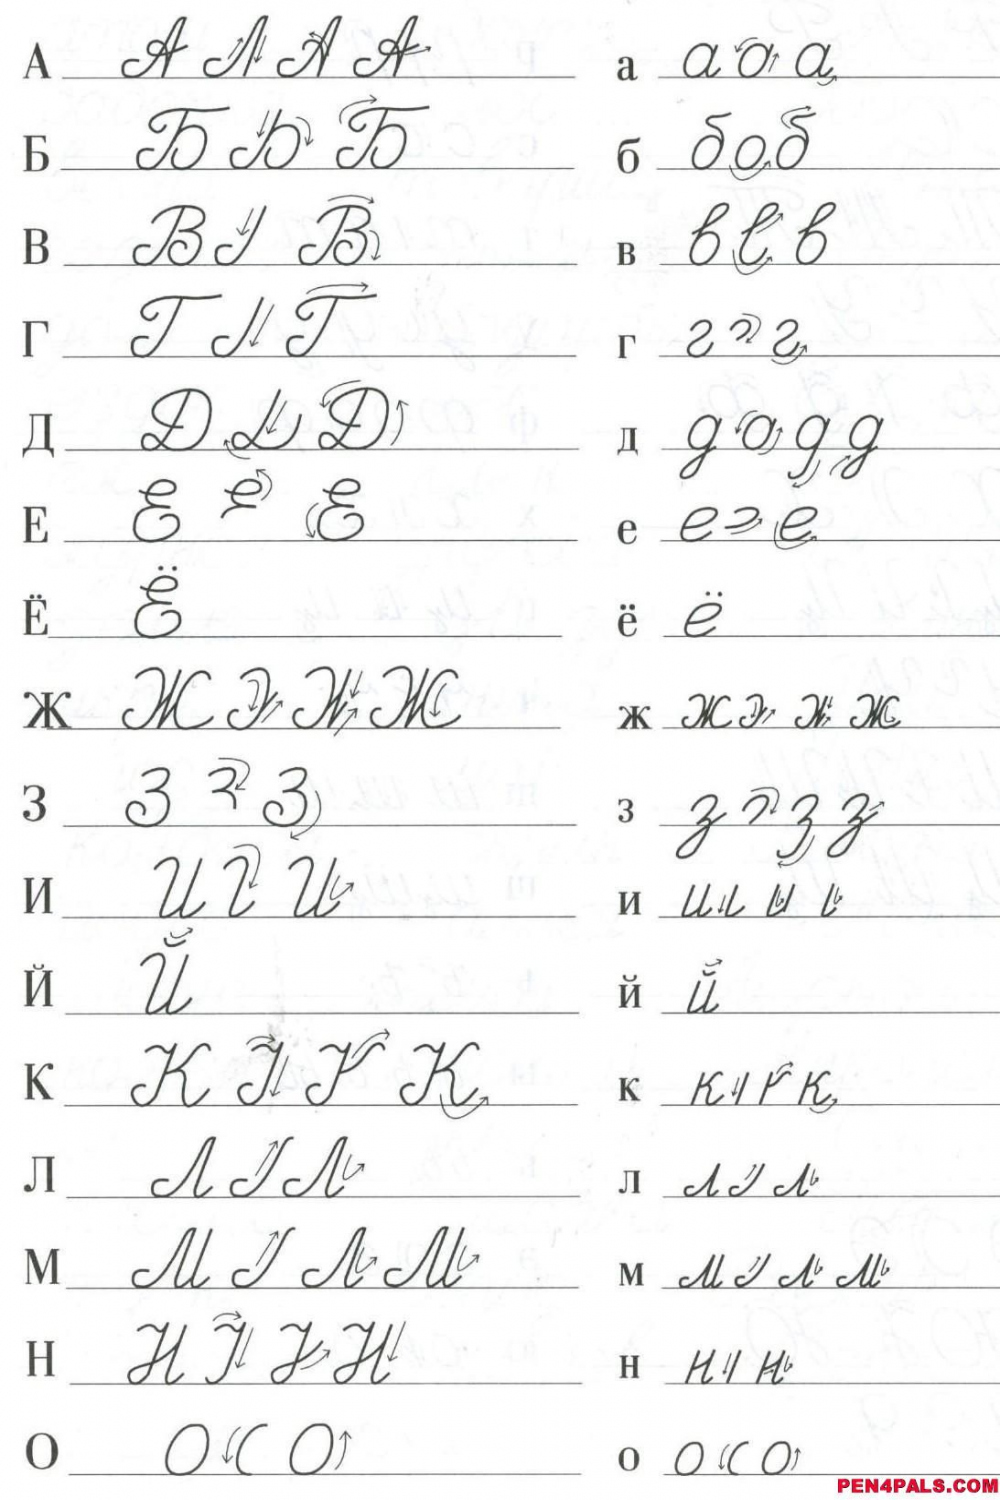 А А Л А А а а о а
Б Б Б б б о б
В В В в в в
Г Г Г г г г
Д Д Д д д о д д
Е Е Е е е е
Ё Ё ё ё
Ж Ж Ж ж ж ж
З З З з з з з
И И И и и и
Й Й й й
К К К к к к
Л Л Л л л л
М М Л М м м л м
Н Н Н н н н
О О С О о о с о
PEN4PALS.COM